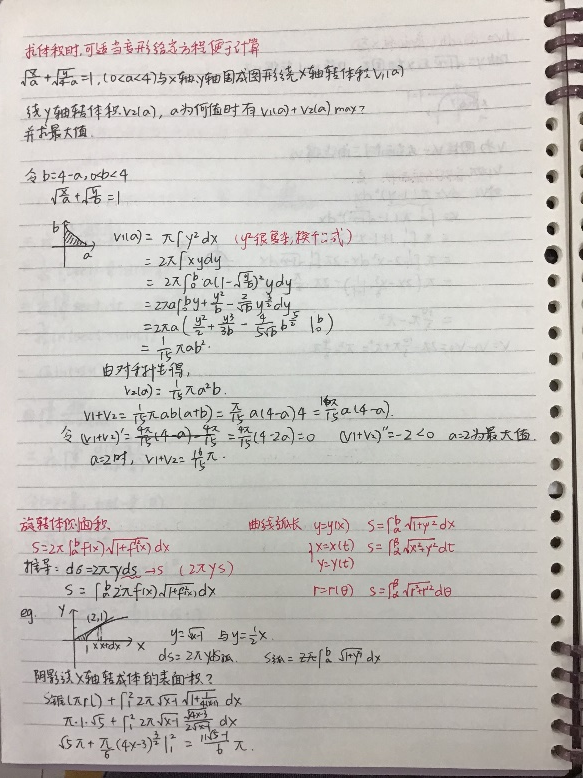 求体积时,可适当变形给定方程便于计算
√x/a + √y/4-a =1, (0<a<4)与x轴y轴围成图形绕x轴转体积V1(a)
绕y轴转体积V2(a), a为何值时有V1(a)+V2(a) max?
并求最大值
令b=4-a, 0<b<4
√x/a + √y/b = 1
b
a
V1(a) = π∫y²dx (y²很复杂,换个公式)
= 2π∫xydy
= 2π∫₀ᵇ a(1-√y/b)²ydy
= 2πa∫₀ᵇ y + y²/b - 2/√b y^3/2 dy
= 2πa( y²/2 + y³/3b - 4/5√b b^5/2 |₀ᵇ )
= 1/15 πab²
由对称性得,
V2(a) = 1/15 πa²b.
V1+V2 = 1/15 πab(a+b) = π/15 a(4-a)4 = 16π/15 a(4-a).
令(V1+V2)' = 4π/15 (4-a) - 4π/15 = 4π/15 (4-2a) = 0 (V1+V2)'' = -2<0 a=2为最大值
a=2时, V1+V2 = 16/15 π.
旋转体侧面积 曲线弧长 y=y(x) S=∫ₐᵇ √1+y'² dx
S=2π∫ₐᵇ f(x)√1+f'²(x) dx { x=x(t) S=∫ₐᵝ √x'²+y'² dt
推导: ds=2πyds→s (2πys) y=y(t)
S = ∫ₐᵇ 2πf(x)√1+f'²(x) dx r=r(θ) S=∫ₐᵝ √r²+r'² dθ
eg. y (2,1)
1 x x+dx x
y=√x-1 与y=1/2 x.
ds=2πyds弧 S弧=2π∫ₐᵇ √1+y'² dx
阴影绕x轴转成体的表面积?
S锥(πrl) + ∫₁² 2π√x-1 √1+1/4(x-1) dx
π·1·√5 + ∫₁² 2π√x-1 √4x-3/2√x-1 dx
√5π + π/6 (4x-3)^3/2 |₁² = 11√5-1/6 π.